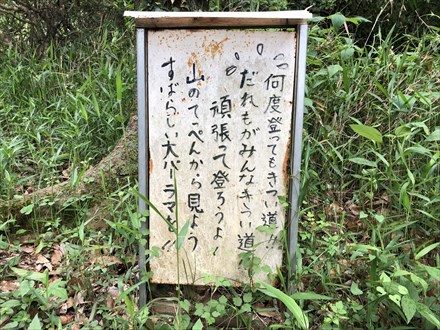 何度登ってもきつい道!!
だれもがみんなきつい道
頑張って登ろうよ!
山のてっぺんから見よう
すばらしい大パノラマを!!